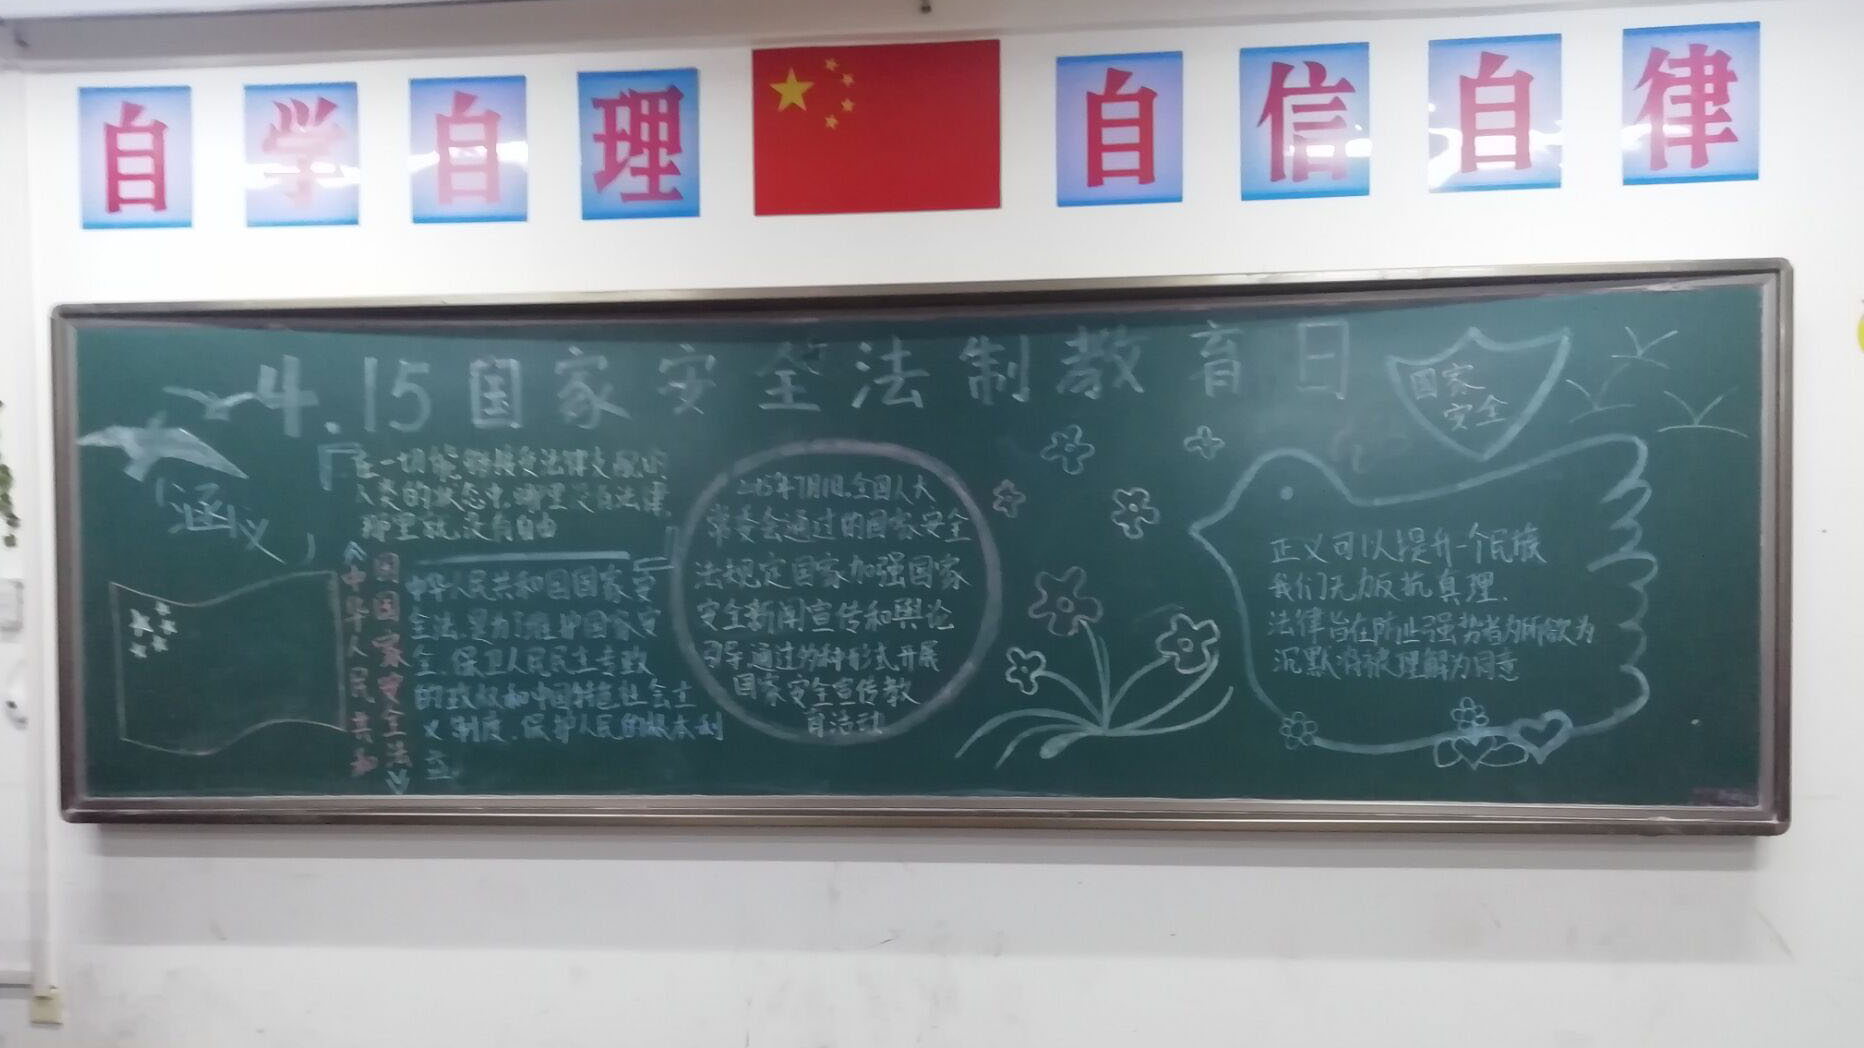 自学自理 自信自律
4.15国家安全法制教育日
国家
安全
涵义
在一切能够接受法律支配的
人类的状态中,哪里没有法律,
那里就没有自由
《中华人民共和
国国家安全法》
中华人民共和国国家安
全法,是为了维护国家安
全,保卫人民民主专政
的政权和中国特色社会主
义制度,保护人民的根本利
2015年7月1日,全国人大
常委会通过的国家安全
法规定国家加强国家
安全新闻宣传和舆论
引导通过多种形式开展
国家安全宣传教
育活动
正义可以提升一个民族
我们无力反抗真理.
法律旨在防止强势者为所欲为
沉默将被理解为同意